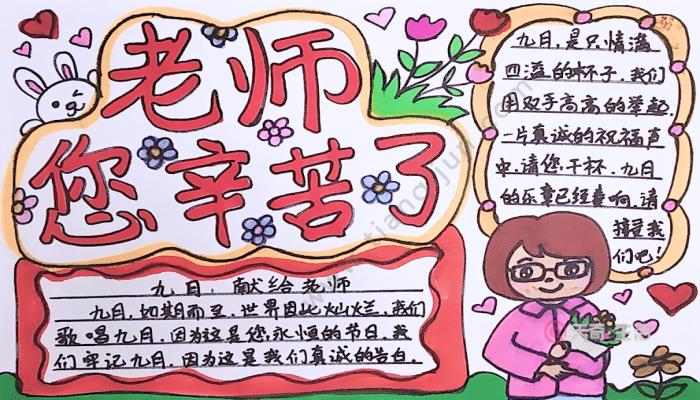 老师
您辛苦了
九月，是只情满
四溢的杯子，我们
用双手高高的举起，
一片真诚的祝福声
中，请您干杯，九月
的乐章已经奏响，请
接受我
们吧！
九月，献给老师
九月，如期而至，世界因此灿烂，我们
歌唱九月，因为这是您永恒的节日，我
们牢记九月，因为这是我们真诚的告白。